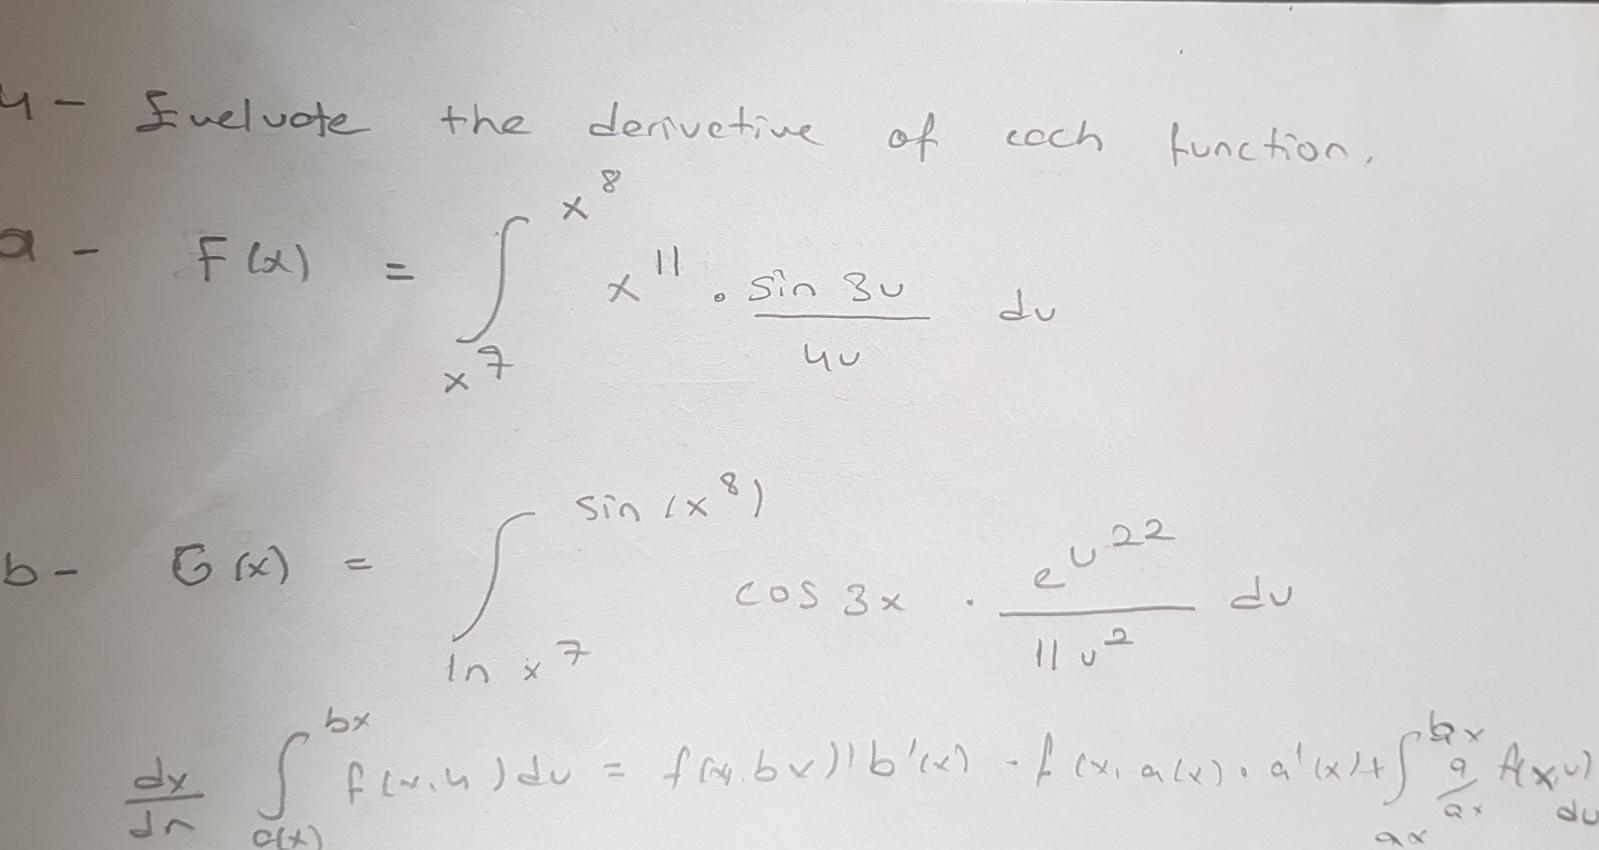 4- Evaluate the derivative of each function.
a- F(x) = ∫_{x^7}^{x^8} x^11 . sin 3u / 4u du
b- G(x) = ∫_{ln x^7}^{sin(x^8)} cos 3x . e^{u^22} / 11u^2 du
dx/dn ∫_{a(x)}^{bx} f(x,u)du = f(x,bx))'b'(x) - f(x,a(x).a'(x)+∫_{ax}^{bx} ∂/∂x f(x,u) du